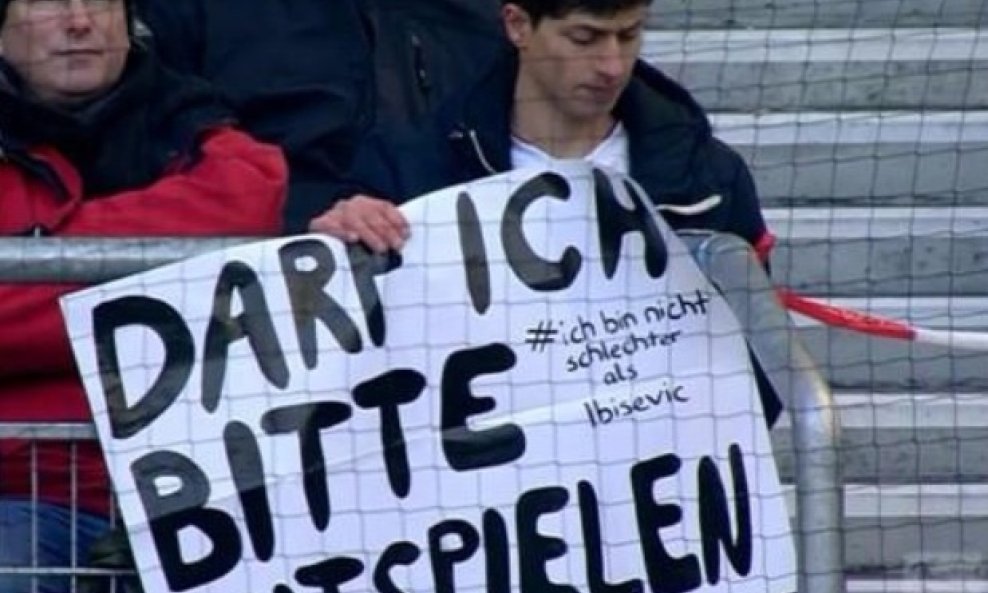 DARF ICH
BITTE
TSPIELEN
#ich bin nicht
schlechter
als
Ibisevic